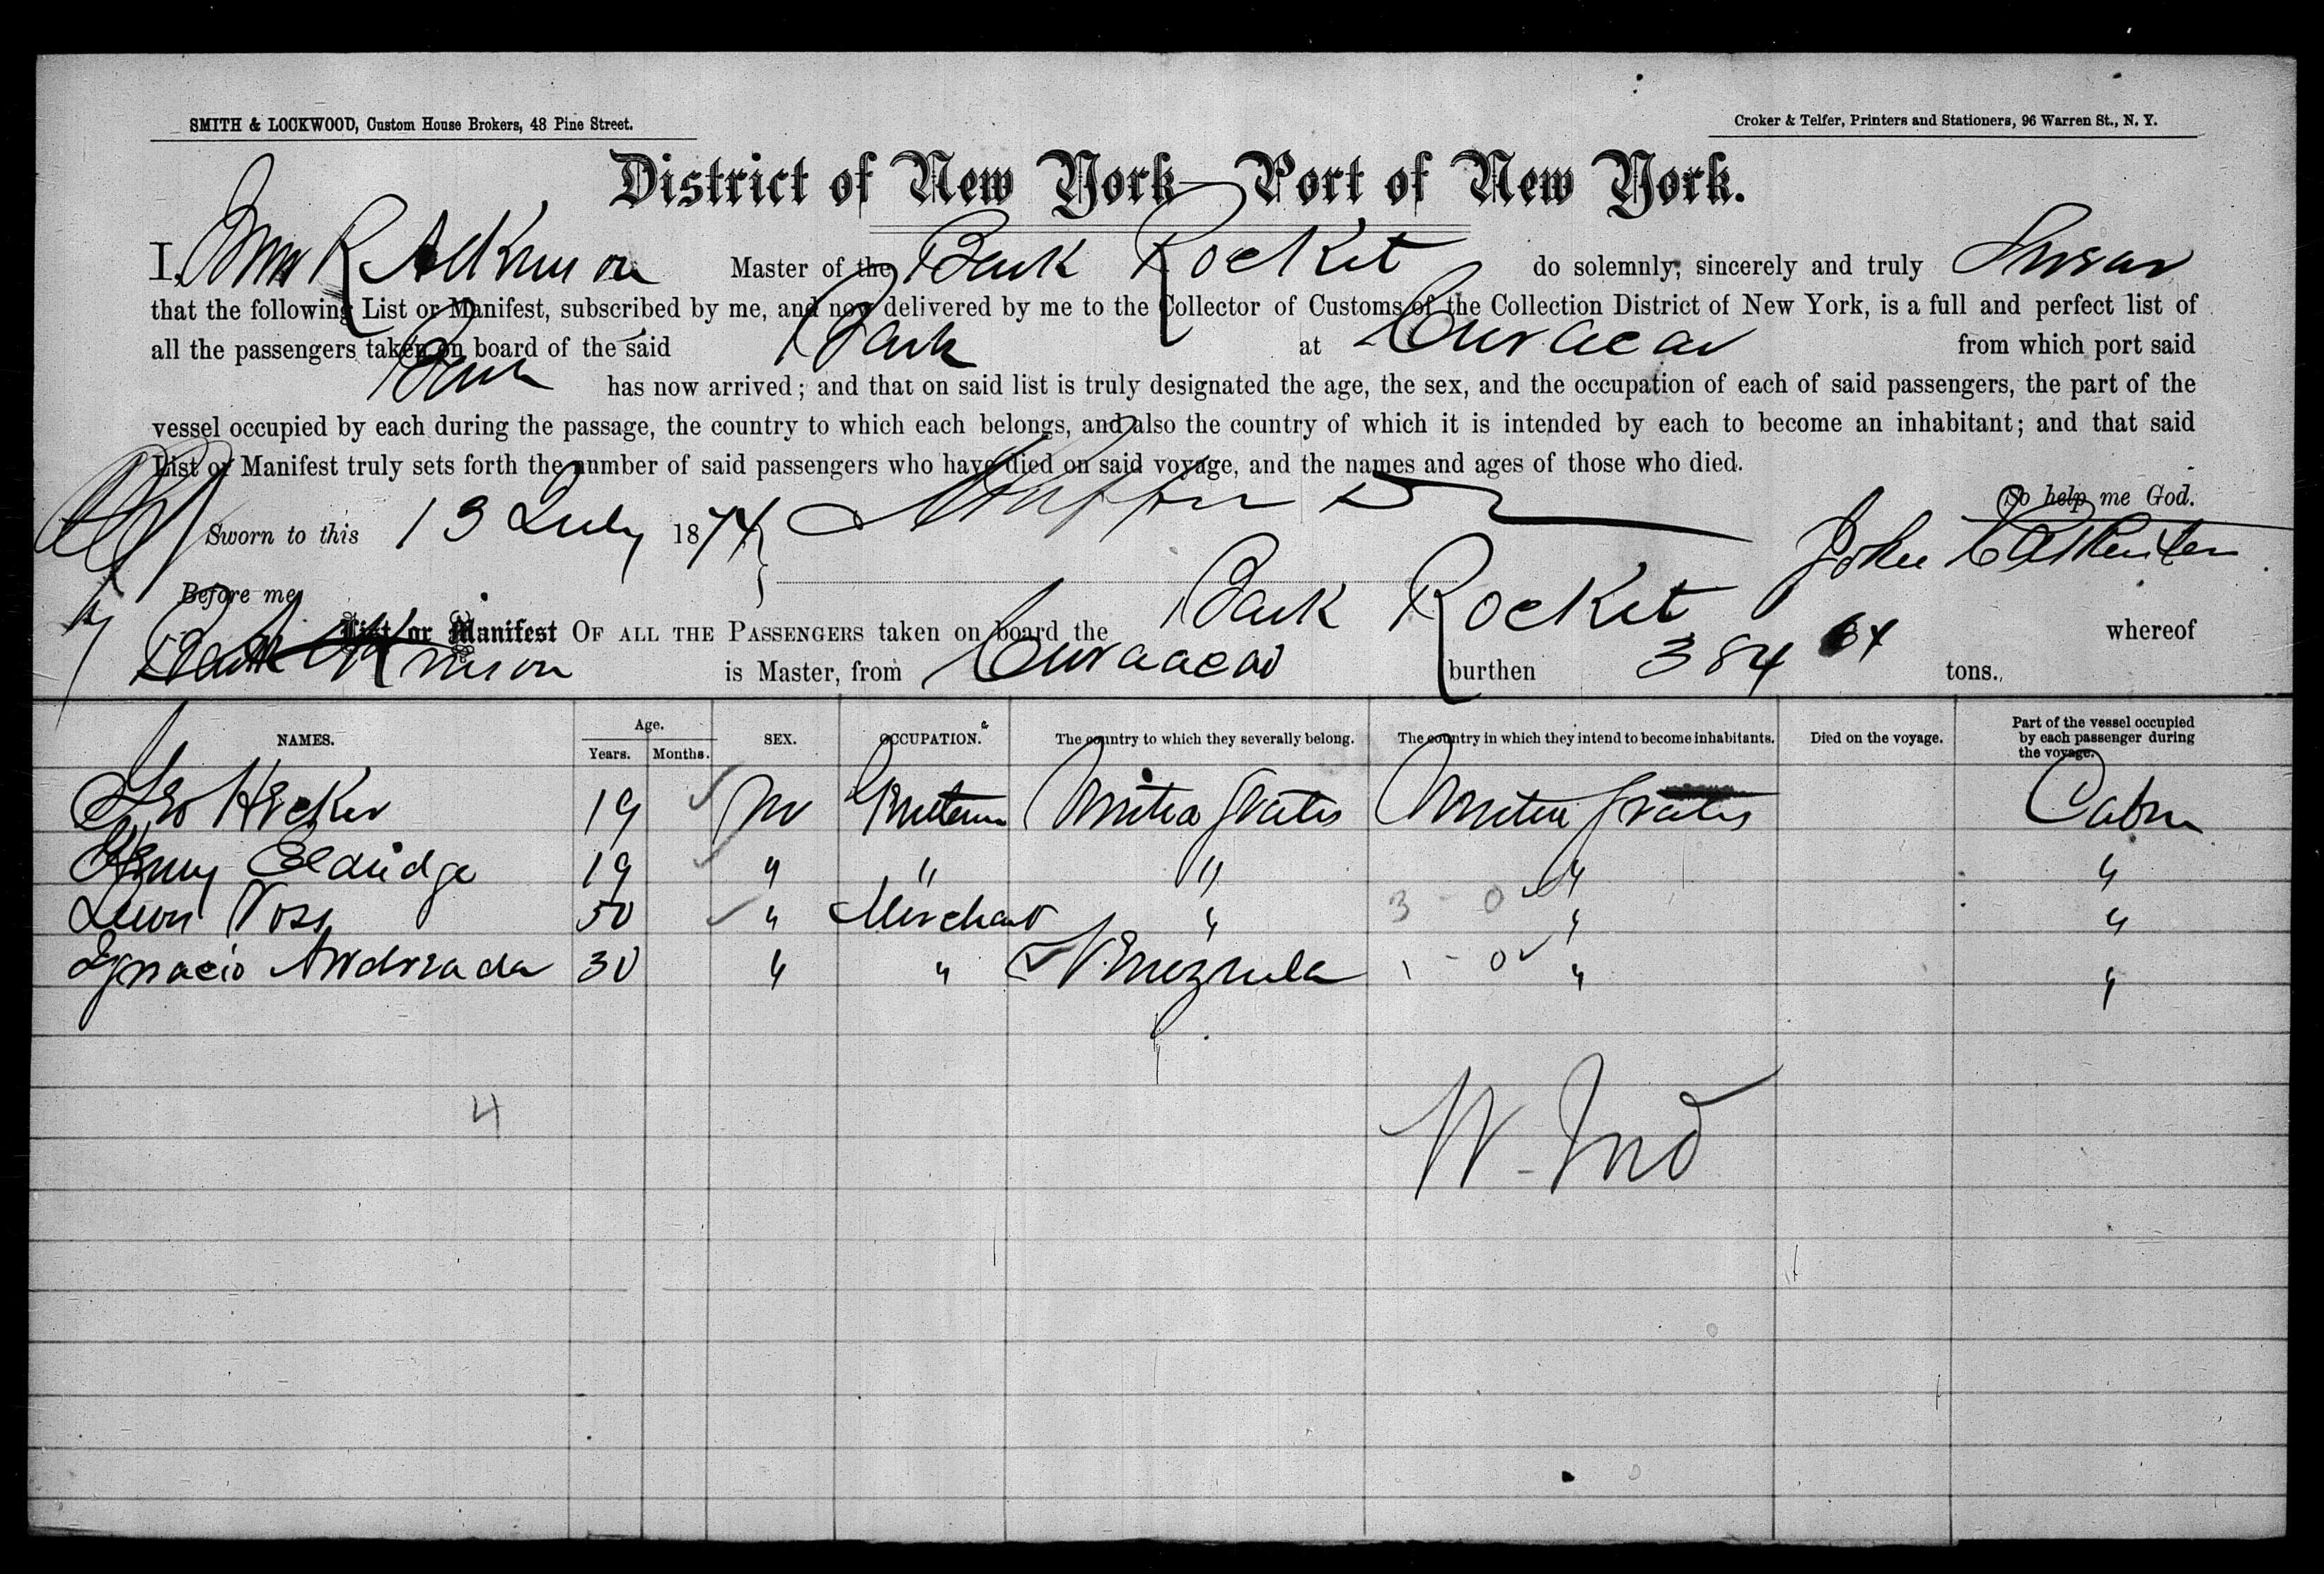 SMITH & LOCKWOOD, Custom House Brokers, 48 Pine Street.
Croker & Telfer, Printers and Stationers, 96 Warren St., N. Y.
District of New York—Port of New York.
I, R Atkinson Master of the Bark Rocket do solemnly, sincerely and truly Swear
that the following List or Manifest, subscribed by me, and now delivered by me to the Collector of Customs of the Collection District of New York, is a full and perfect list of
all the passengers taken on board of the said Bark at Curacao from which port said
Bark has now arrived; and that on said list is truly designated the age, the sex, and the occupation of each of said passengers, the part of the
vessel occupied by each during the passage, the country to which each belongs, and also the country of which it is intended by each to become an inhabitant; and that said
List or Manifest truly sets forth the number of said passengers who have died on said voyage, and the names and ages of those who died.
So help me God.
Sworn to this 13 July 1874
John
Before me
List or Manifest OF ALL THE PASSENGERS taken on board the Bark Rocket whereof
Atkinson is Master, from Curaacao burthen 384 64 tons.
NAMES. Age. Years. Months. SEX. OCCUPATION. The country to which they severally belong. The country in which they intend to become inhabitants. Died on the voyage. Part of the vessel occupied by each passenger during the voyage.
Geo Hecker 19 M United States United States Cabin
Henry Eldridge 19 " " " " "
Voss 50 " Merchant " 3 - 0 " "
Ignacio Andrzada 30 " " Venezuela 1 - 0 " "
4
W. Ind